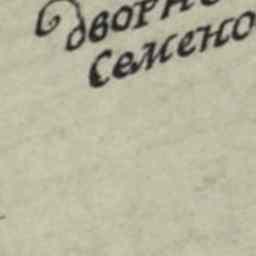 дворн
Семено